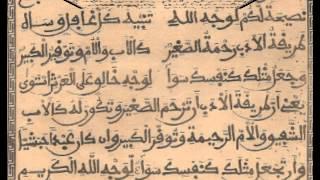 نصيحة لكم لوجه الله تنبيه كل غافل وساه
طريقة الأدب رحمة الصغير كالأب والأم وتوقير الكبير
وجعل مثلك كنفسك سوا لوجه خالق على العرش استوى
يعني أن طريقة الأدب أن ترحم الصغير وتكون له كالأب
الشفيق والأم الرحيمة وتوقر الكبير وإن كان عبدا حبشيا
وأن تجعل مثلك كنفسك سواء لوجه الله الكريم